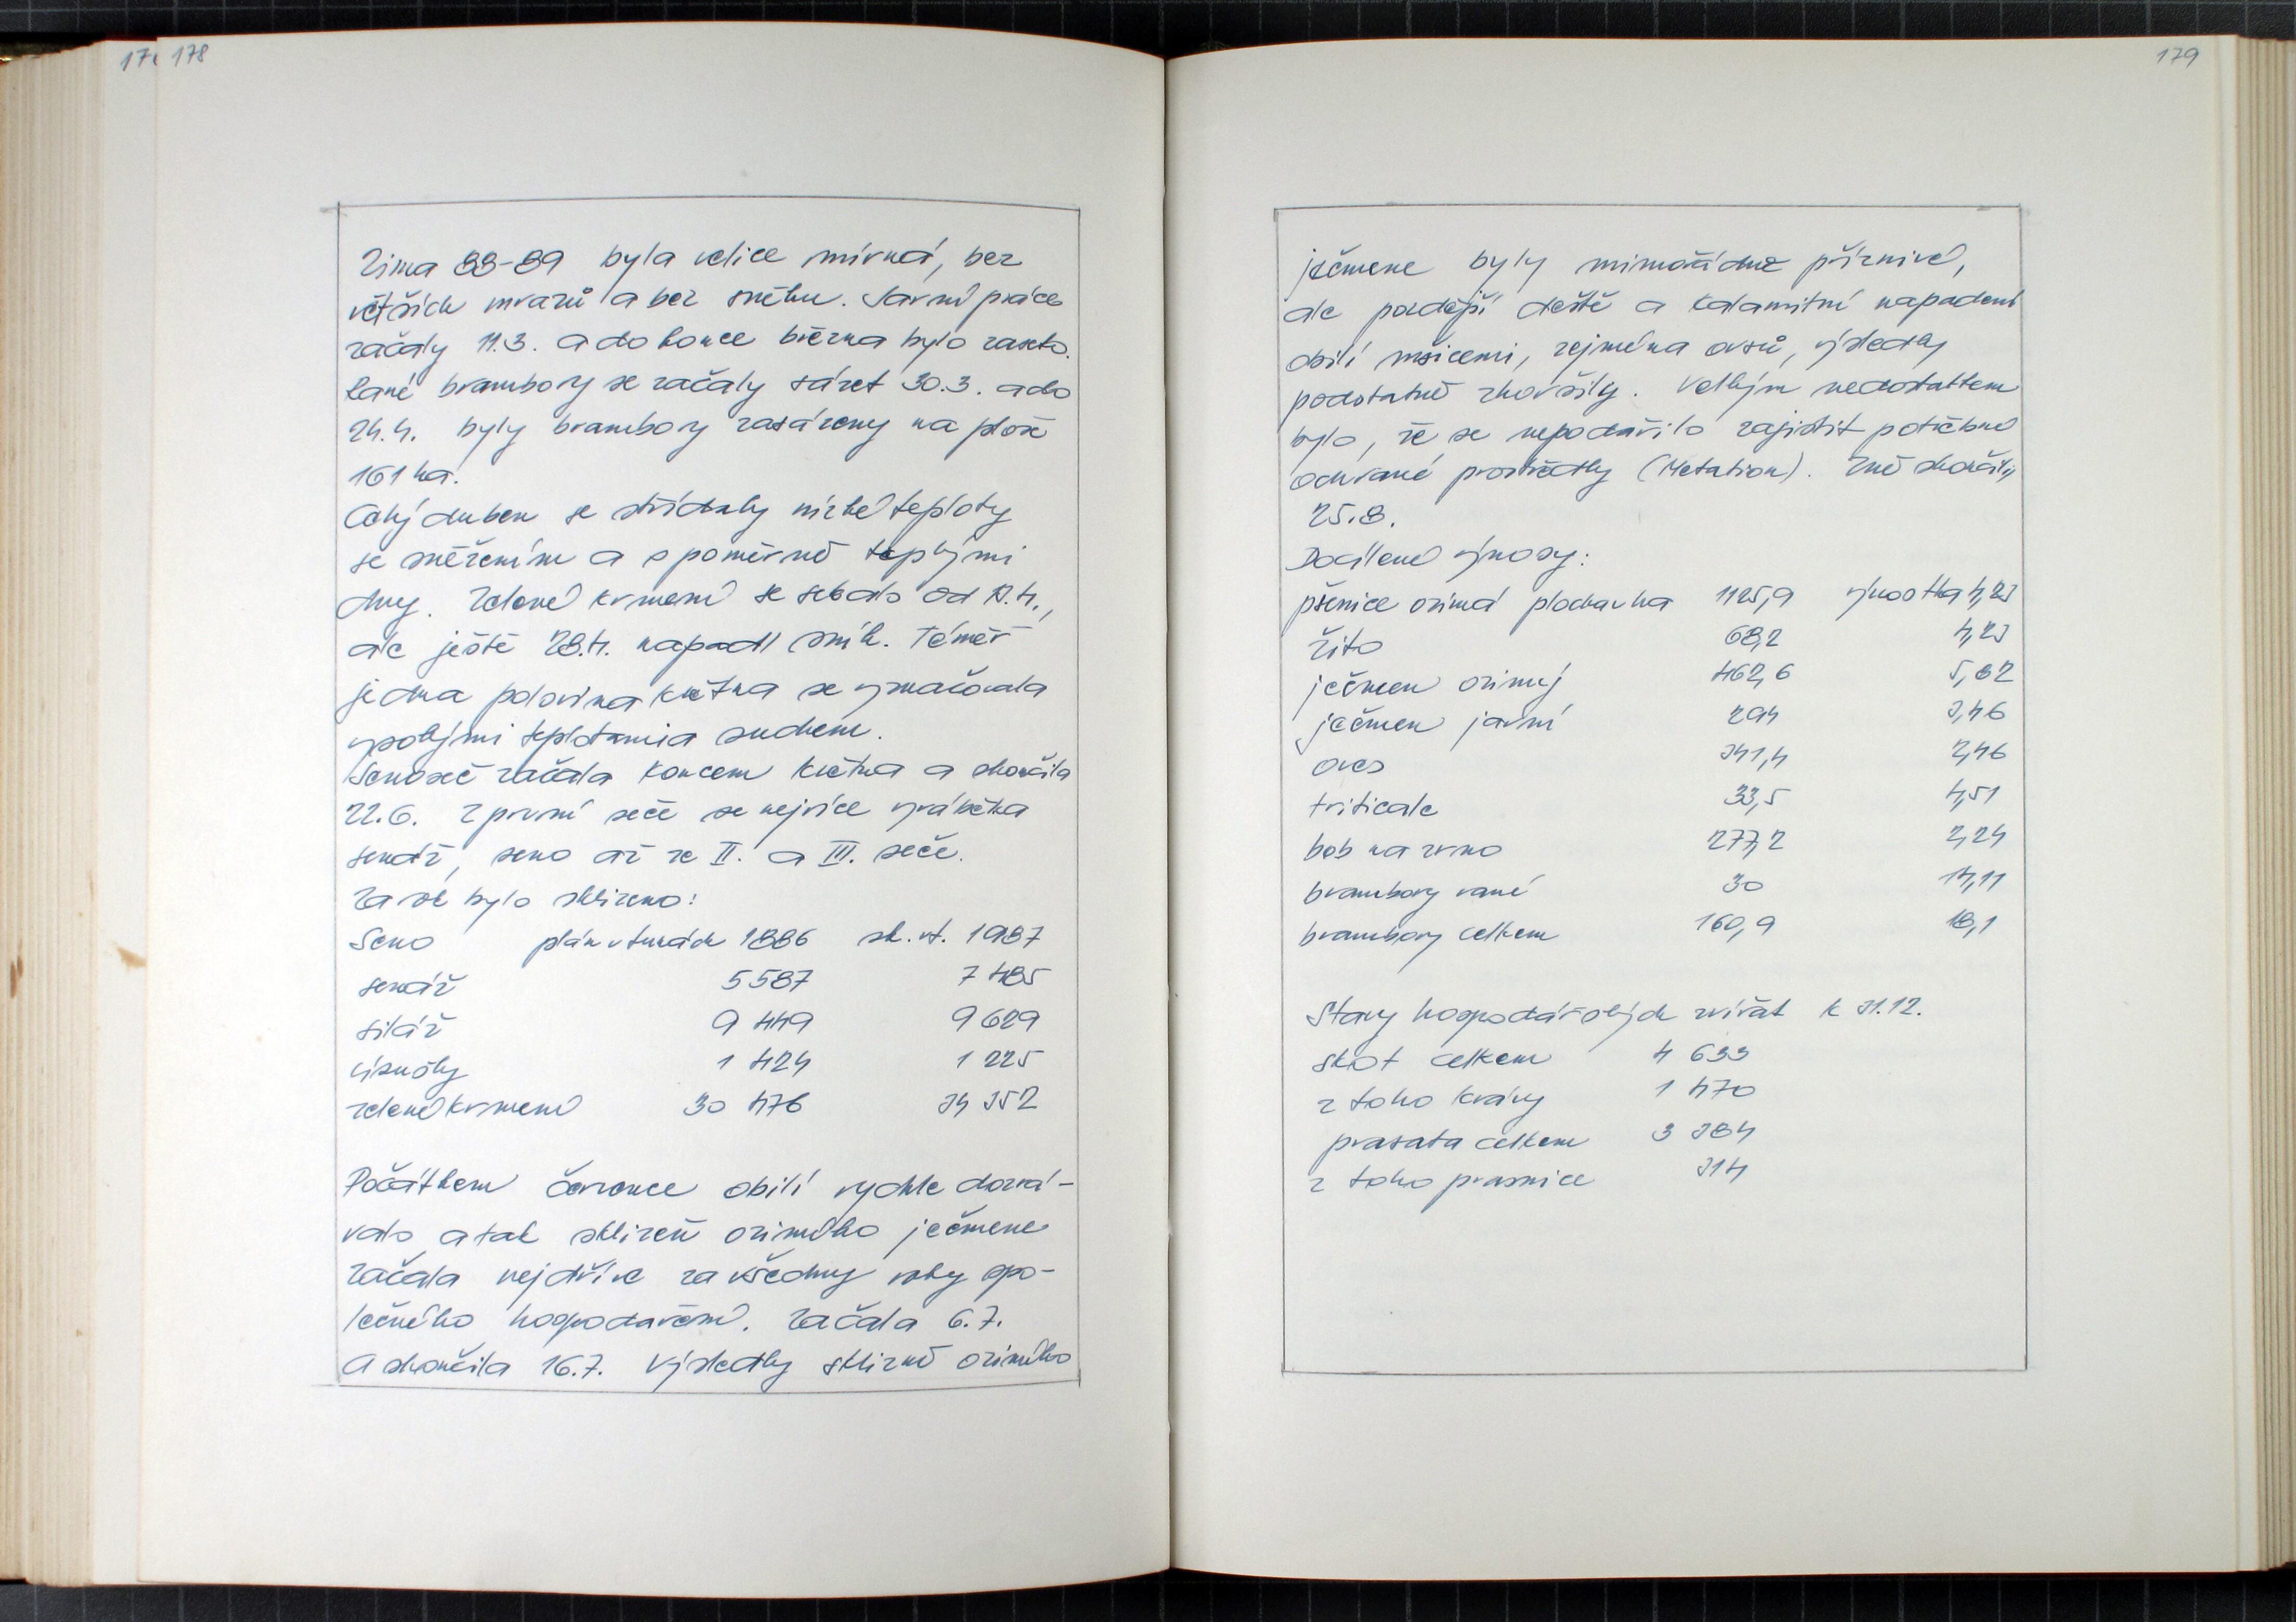 178
Zima 88-89 byla velice mírná, bez
větších mrazů a bez sněhu. Jarní práce
začaly 11.3. a do konce března bylo zaseto.
Rané brambory se začaly sázet 30.3. a do
24.4. byly brambory zasázeny na ploše
161 ha.
Celý duben se střídaly nízké teploty
se sněžením a s poměrně teplými
dny. Zelené krmení se sebalo od 12.4.,
ale ještě 28.4. napadl sníh. Téměř
jedna polovina května se vyznačovala
vysokými teplotami a suchem.
Senoseč začala koncem května a skončila
22.6. Z první seče se nejvíce vyráběla
senáž, seno až ze II. a III. seče.
Za rok bylo sklizeno:
Seno plán v tunách 1886 sk. vt. 1987
senáž 5587 7 485
siláž 9 449 9 629
úsušky 1 424 1 225
zelené krmení 30 476 34 352
Počátkem července obilí rychle dozrá-
valo a tak sklizeň ozimého ječmene
začala nejdříve za všechny roky spo-
lečného hospodaření. Začala 6.7.
a skončila 16.7. Výsledky sklizně ozimého
179
ječmene byly mimořádně příznivé,
ale pozdější deště a kalamitní napadení
obilí mšicemi, zejména ovsů, výsledky
podstatně zhoršily. Velkým nedostatkem
bylo, že se nepodařilo zajistit potřebné
ochrané prostředky (Metation). Žně skončily
25.8.
Docílené výnosy:
pšenice ozimá plocha v ha 1125,9 výnos t ha 4,23
žito 68,2 4,23
ječmen ozimý 462,6 5,82
ječmen jarní 294 3,46
oves 341,4 2,46
triticale 33,5 4,51
bob na zrno 277,2 2,24
brambory rané 30 14,11
brambory celkem 160,9 18,1
Stavy hospodářských zvířat k 31.12.
skot celkem 4 633
z toho krávy 1 470
prasata celkem 3 384
z toho prasnice 314